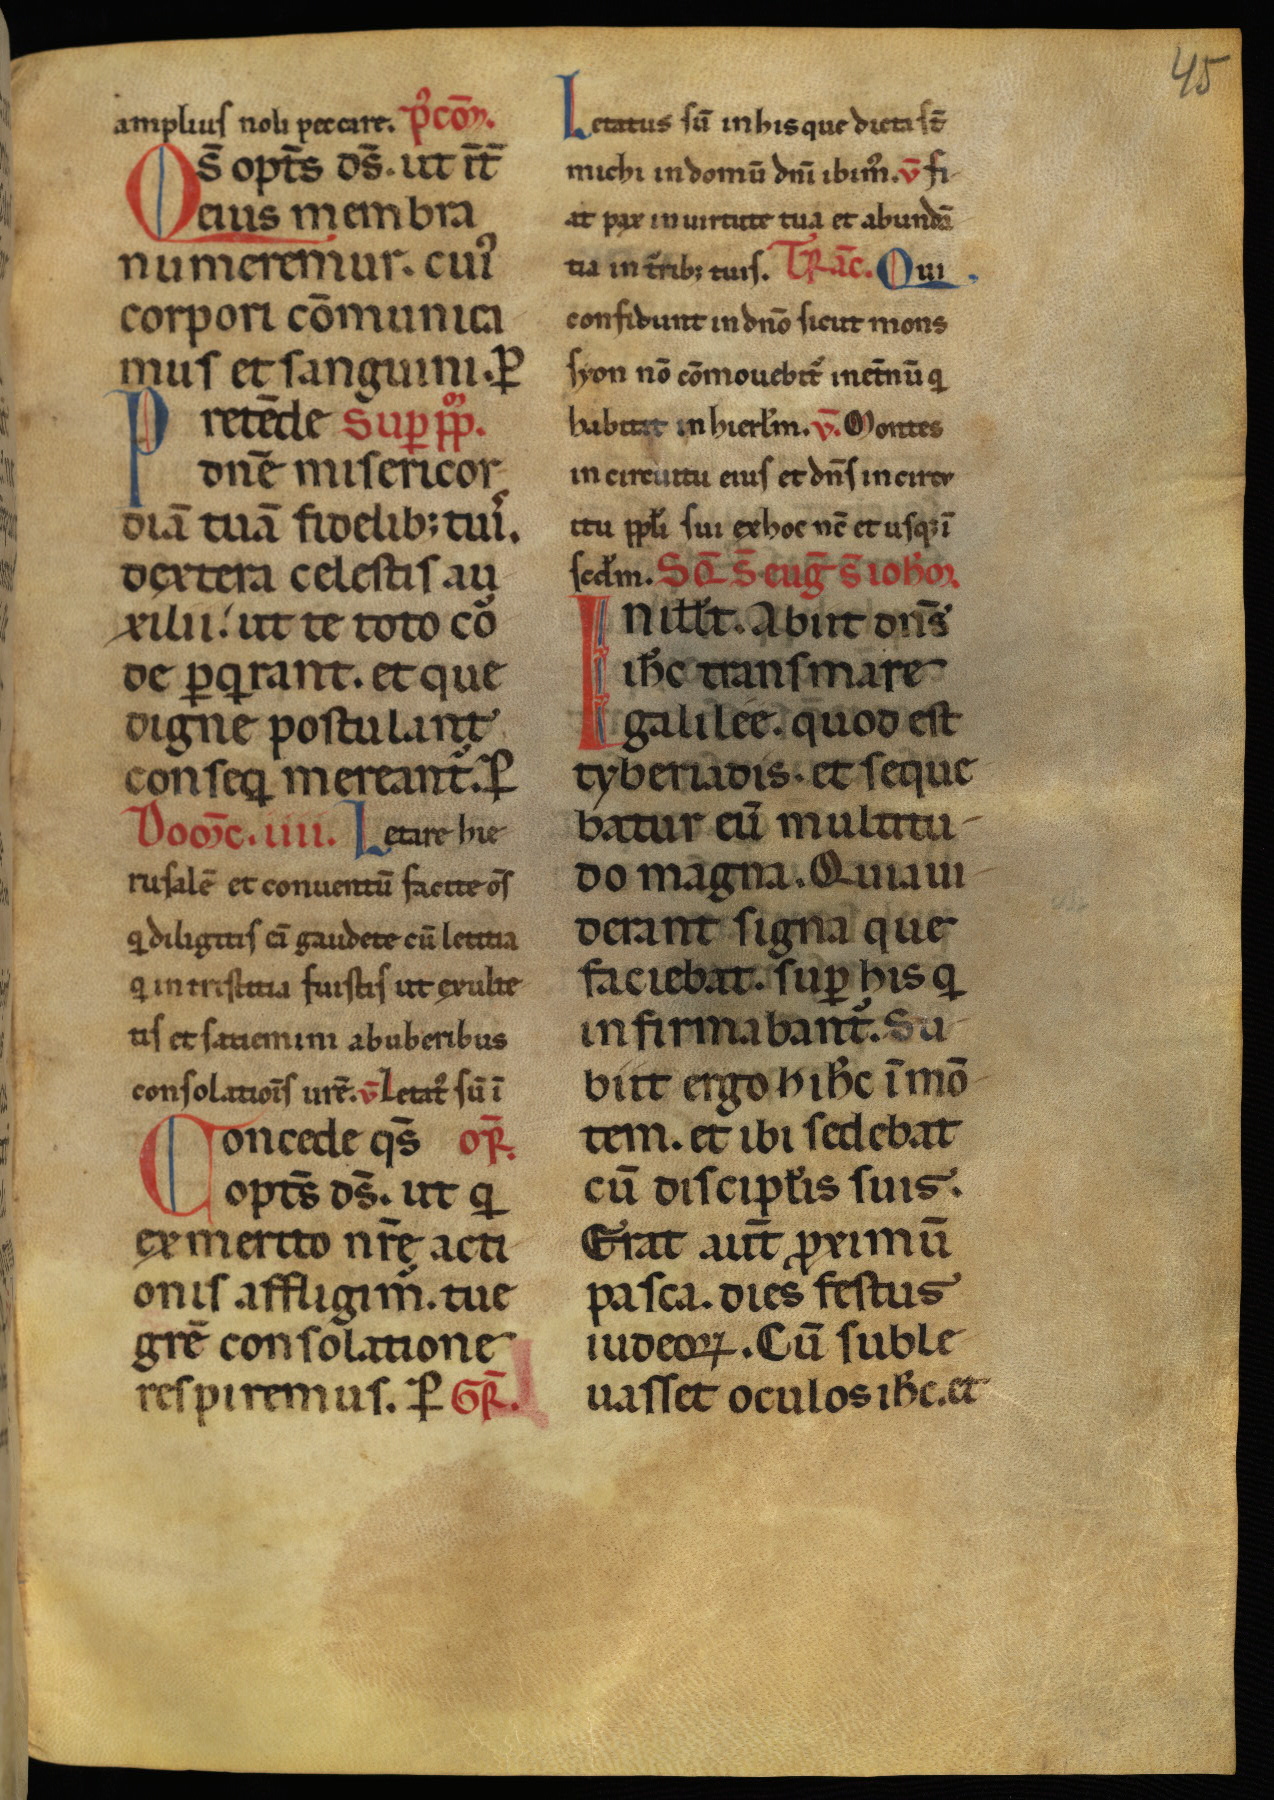 45
amplius noli peccare. p̾cōm̄.
Qs̄ opt̄s ds̄. ut īt̄
eius membra
numeremur. cuiꝰ
corpori cōmunica
mus et sanguini. ꝑ
Pretēde Suꝑ ppᷤ.
dn̄e misericor
diā tuā fidelibꝫ tuis.
dextera celestis au
xilii. ut te toto cor
de ꝑqirant. et que
digne postulant
conseqi mereant᷑. ꝑ
Dom̄c. iiii. Letare hie
rusalē et conuentū facite oēs
qi diligitis eā gaudete cū letitia
qi in tristitia fuistis ut exulte
tis et satiemini ab uberibus
consolatiōis ur̄e. v̄ Letatꝰ sū ī
Concede qs̄ oR̄.
opt̄s ds̄. ut qi
ex merito nr̄e acti
onis affligim᷑. tue
gr̄e consolatione
respiremus. ꝑ GR̄.
Letatus sū in his que dicta st̄
michi in domū dn̄i ibimꝰ. v̄ fi
at pax in uirtute tua et abundā
tia in t̄ribꝫ tuis. TRāc. Qui
confidunt in dn̄o sicut mons
syon nō cōmouebit᷑ in et̄nū qi
habitat in hierłm. v̄. Montes
in circuitu eius et dn̄s in circu
itu ppłi sui ex hoc nc̄ et usqꝫ ī
secłm. SQ̄ s̄ euḡ s̄ iohem̄.
In illłt. Abiit dn̄s
ih̄c trans mare
galilee. quod est
tyberiadis. et seque
batur eū multitu
do magna. Quia ui
derant signa que
faciebat. suꝑ his qi
infirmabant᷑. Su
biit ergo ih̄c ī mō
tem. et ibi sedebat
cū discipłis suis.
Erat aut̄ ꝓximū
pasca. dies festus
iudeoꝝ. Cū suble
uasset oculos ih̄c. et